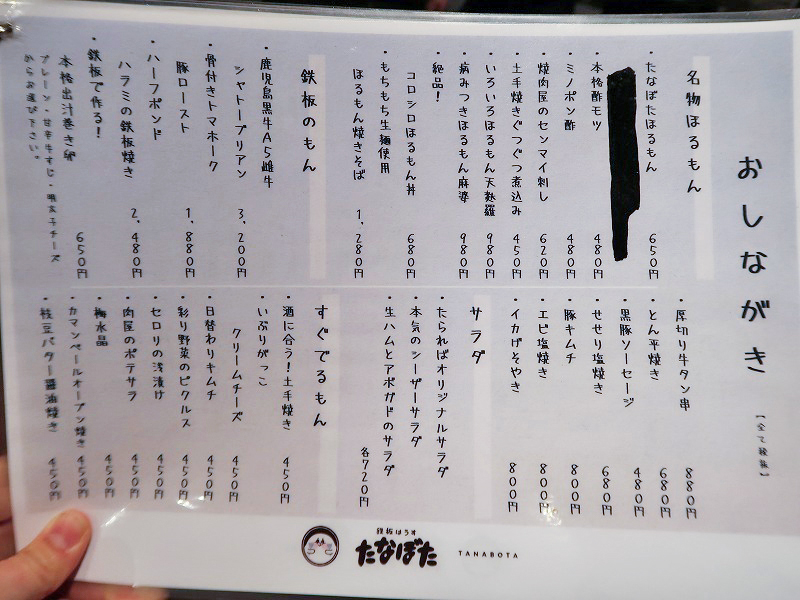 おしながき
【全て税抜】
名物ほるもん
・たなぼたほるもん 650円
・本格酢モツ 480円
・ミノポン酢 480円
・焼肉屋のセンマイ刺し 620円
・土手焼きぐつぐつ煮込み 450円
・いろいろほるもん天麩羅 980円
・病みつきほるもん麻婆 980円
・絶品!
コロシロほるもん丼 680円
・もちもち生麺使用
ほるもん焼きそば 1,280円
鉄板のもん
・鹿児島黒牛A5雌牛
シャトーブリアン 3,200円
・骨付きトマホーク
豚ロースト 1,880円
・ハーフポンド
ハラミの鉄板焼き 2,480円
・鉄板で作る!
本格出汁巻き卵 650円
プレーン・甘辛牛すじ・明太子チーズ
からお選び下さい。
・厚切り牛タン串 880円
・とん平焼き 680円
・黒豚ソーセージ 480円
・せせり塩焼き 680円
・豚キムチ 800円
・エビ塩焼き 800円
・イカげそやき 800円
サラダ
・たらればオリジナルサラダ
・本気のシーザーサラダ
・生ハムとアボガドのサラダ
各720円
すぐでるもん
・酒に合う!土手焼き 450円
・いぶりがっこ
クリームチーズ 450円
・日替わりキムチ 450円
・彩り野菜のピクルス 450円
・セロリの浅漬け 450円
・肉屋のポテサラ 450円
・梅水晶 450円
・カマンベールオーブン焼き 450円
・枝豆バター醤油焼き 450円
鉄板はうす
たなぼた
TANABOTA